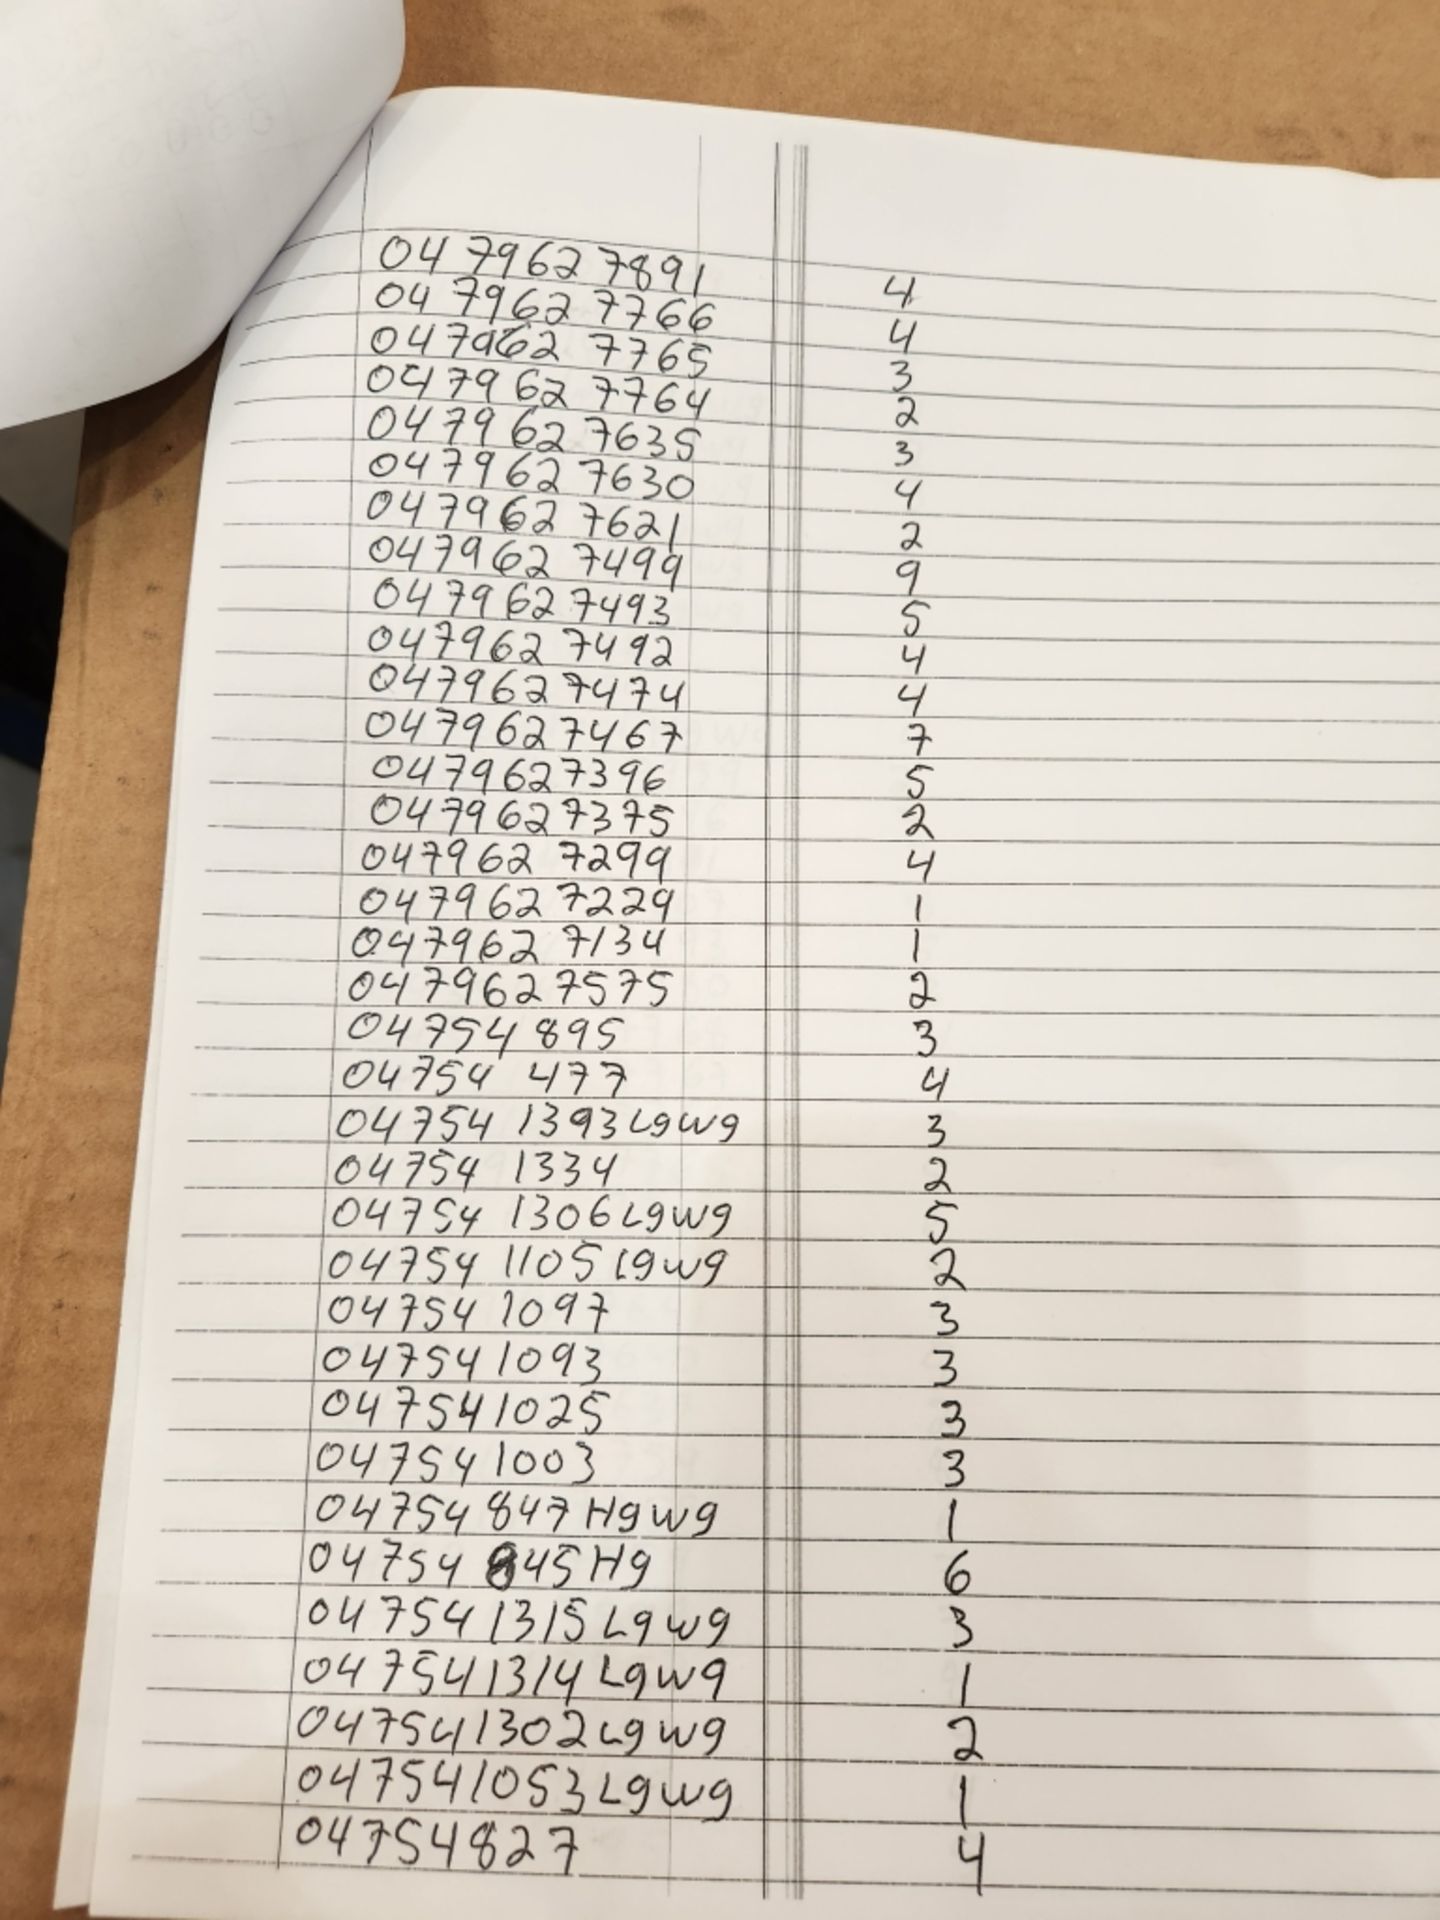 047962 7891 4
047962 7766 4
047962 7765 3
047962 7764 2
047962 7635 3
047962 7630 4
047962 7621 2
047962 7499 9
047962 7493 5
047962 7492 4
047962 7474 4
047962 7467 7
0479627396 5
0479627375 2
047962 7299 4
047962 7229 1
047962 7134 1
0479627575 2
04754 895 3
04754 477 4
04754 1393LgWg 3
04754 1334 2
04754 1306LgWg 5
04754 1105LgWg 2
04754 1097 3
047541093 3
047541025 3
047541003 3
04754 847HgWg 1
04754 845Hg 6
047541315LgWg 3
047541314LgWg 1
047541302LgWg 2
047541053LgWg 1
04754827 4